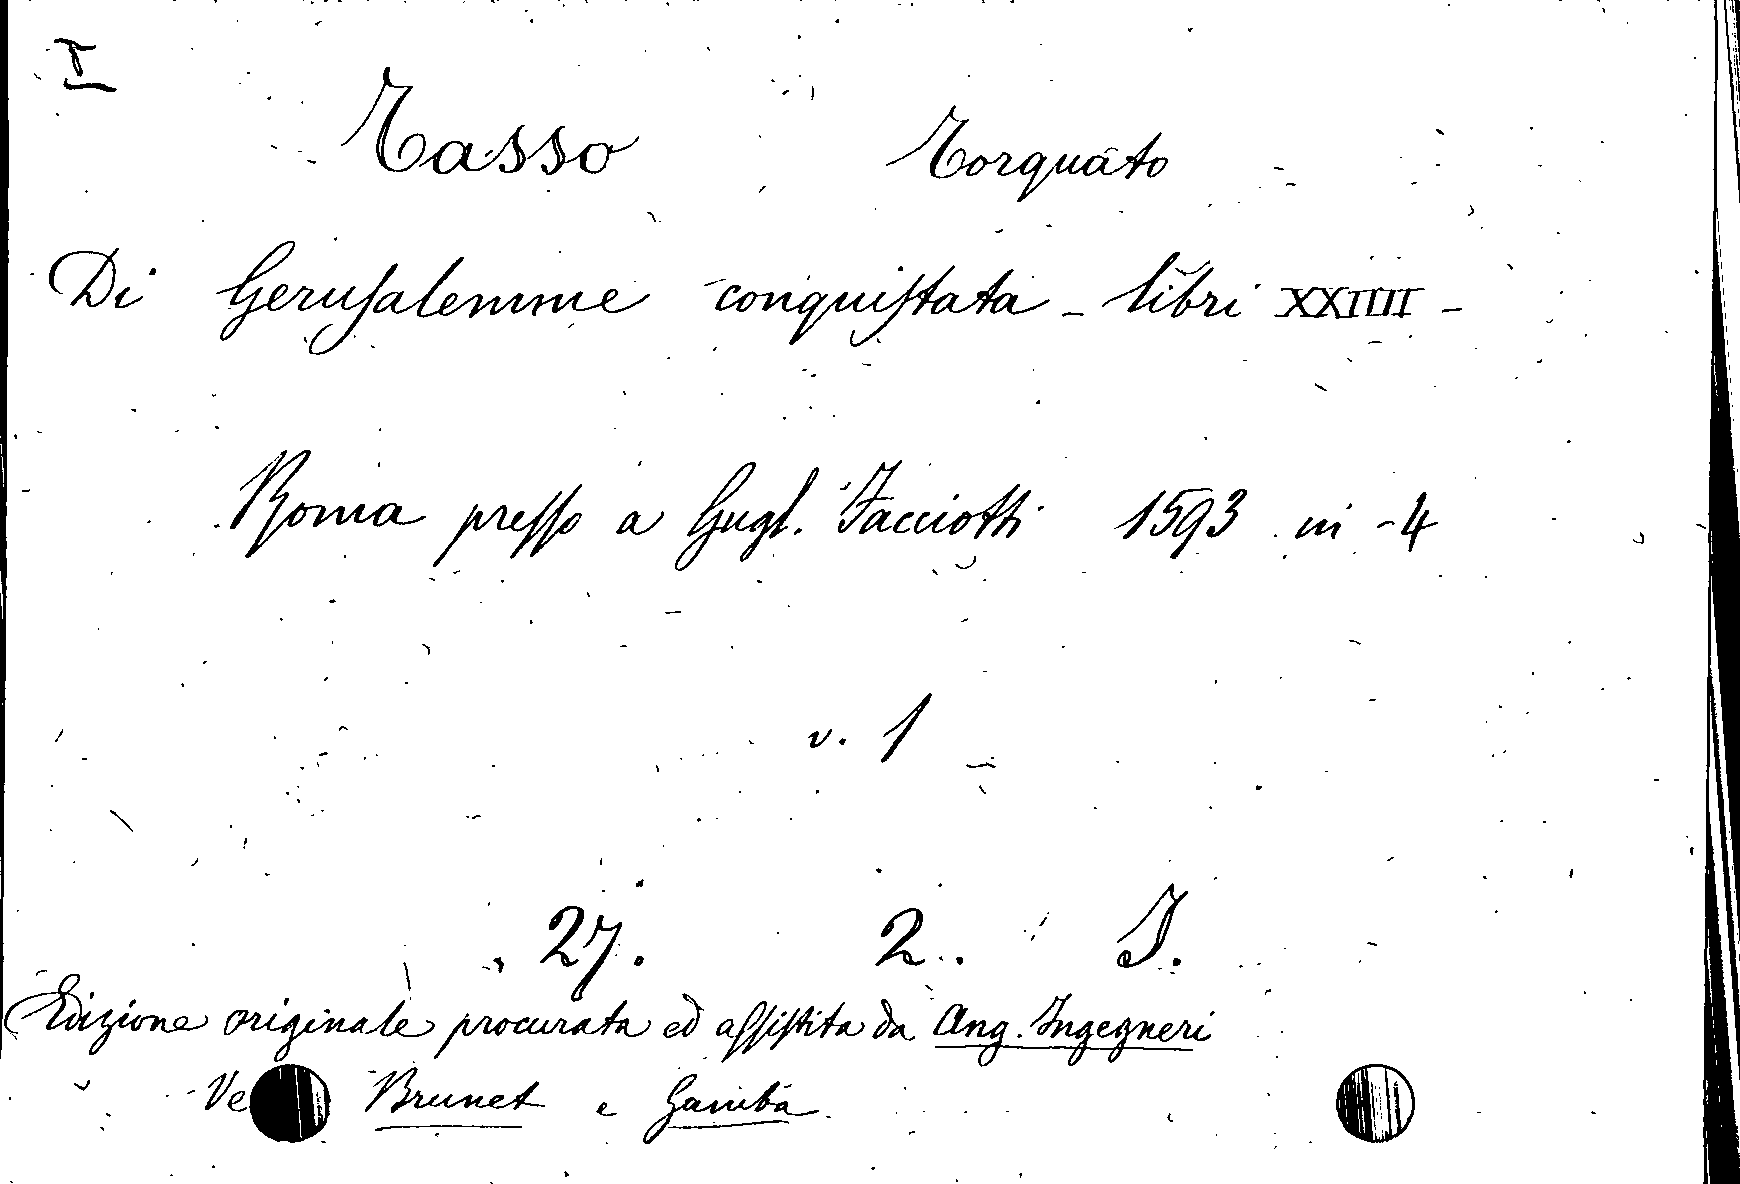 I
Tasso Torquato
Di Gerusalemme conquistata - libri XXIIII -
Roma presso a Gugl. Facciotti 1593 in -4
v. 1
27. 2. I.
Edizione originale procurata ed assistita da Ang. Ingegneri
Brunet e Gamba